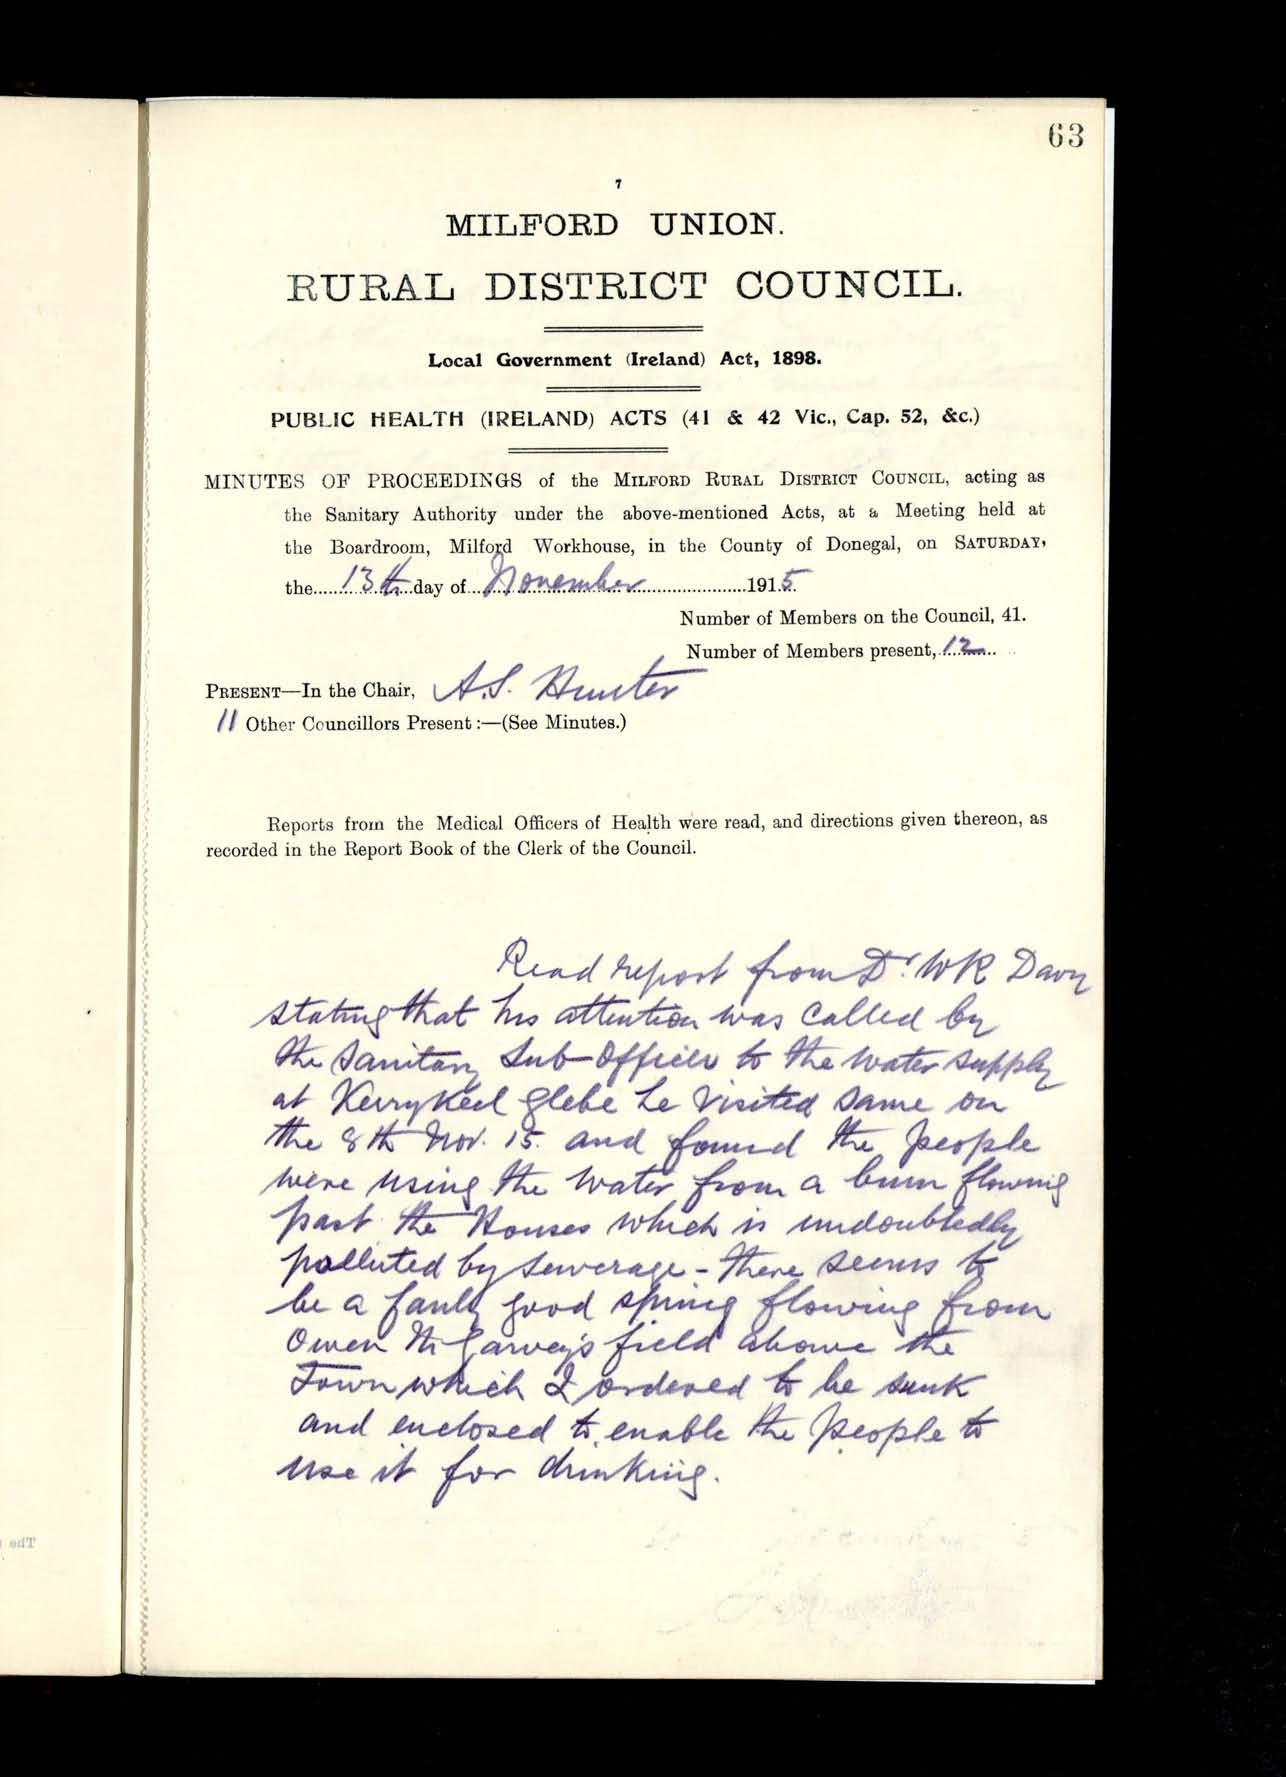 63
7
MILFORD UNION.
RURAL DISTRICT COUNCIL.
Local Government (Ireland) Act, 1898.
PUBLIC HEALTH (IRELAND) ACTS (41 & 42 Vic., Cap. 52, &c.)
MINUTES OF PROCEEDINGS of the MILFORD RURAL DISTRICT COUNCIL, acting as
the Sanitary Authority under the above-mentioned Acts, at a Meeting held at
the Boardroom, Milford Workhouse, in the County of Donegal, on SATURDAY,
the 13th day of November 1915
Number of Members on the Council, 41.
Number of Members present, 12
PRESENT—In the Chair, A.S. Hunter
11 Other Councillors Present:—(See Minutes.)
Reports from the Medical Officers of Health were read, and directions given thereon, as
recorded in the Report Book of the Clerk of the Council.
Read report from Dr. W R Davy
stating that his attention was called by
the Sanitary Sub-Officer to the water supply
at Kerrykeel Glebe he visited same on
the 8th Nov. 15. and found the people
were using the water from a burn flowing
past the Houses which is undoubtedly
polluted by sewerage - there seems to
be a fairly good spring flowing from
Owen McGarvey's field above the
Town which I ordered to be sunk
and enclosed to enable the people to
use it for drinking.